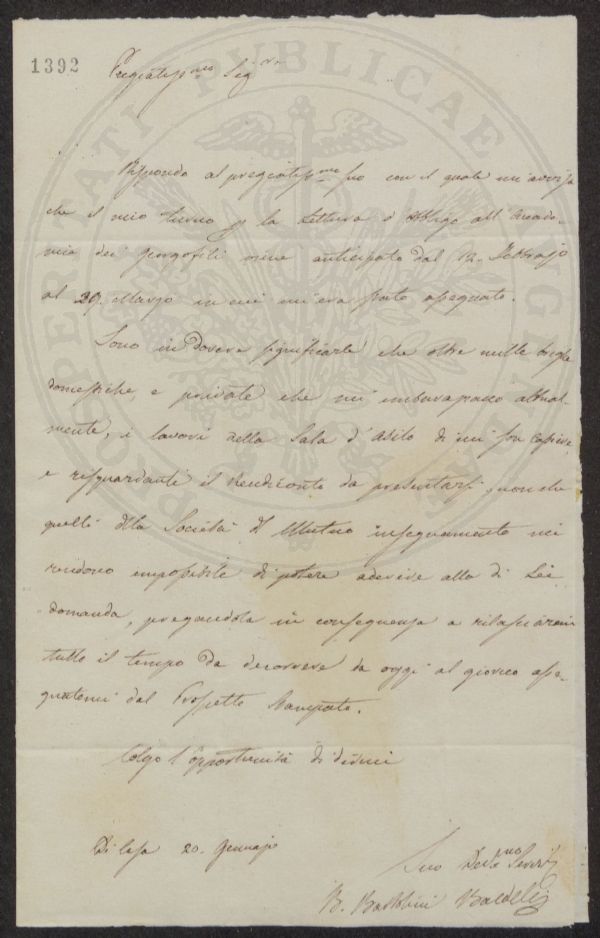 1392
Pregiatissmo Sigre
Rispondo al pregiatissmo suo con il quale mi avvisa
che il mio turno p la Lettura d'Obbligo all'Accade-
mia dei Georgofili viene anticipato dal 12. Febbrajo
al 29. Marzo in cui mi era stato assegnato.
Sono in dovere significarle che oltre mille brighe
domestiche, e private che mi imbarazzano attual-
mente, i lavori della Sala d'Asilo di cui son Cassiere
e risguardanti il Rendiconto da presentarsi, nonché
quelli della Società di Mutuo insegnamento mi
rendono impossibile di potere aderire alla di Lei
domanda, pregandola in conseguenza a rilasciarmi
tutto il tempo da decorrere da oggi al giorno asse-
gnatomi dal Prospetto Stampato.
Colgo l'opportunità di dirmi
Di Casa 20. Gennajo
Suo Devmo Servre
B. Bartolini Baldelli
PROSPERITATI PUBLICAE AUGENDAE